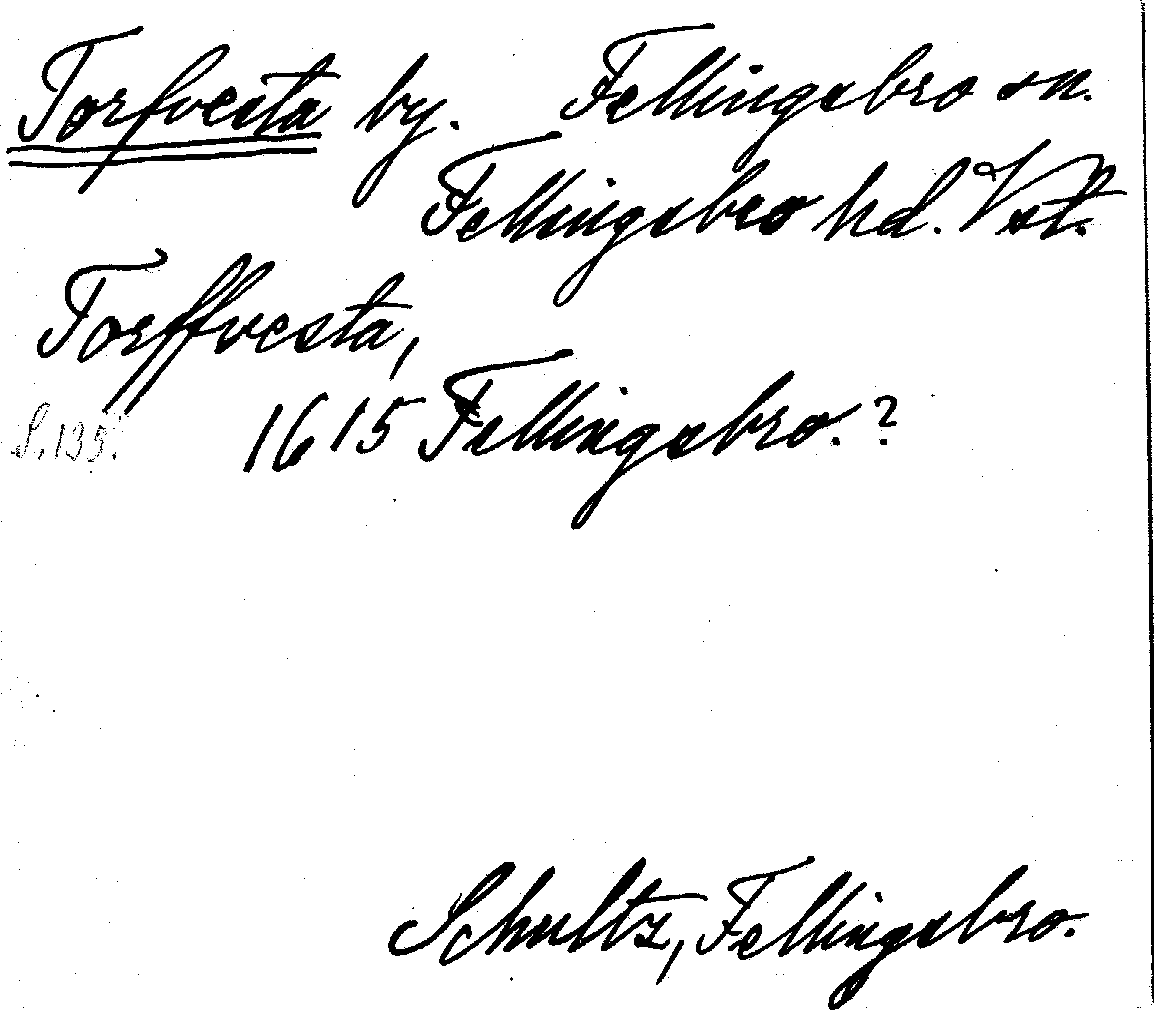 Torfvesta by. Fellingsbro sn.
Fellingsbro hd. Vstm.
Torffvesta,
S. 135. 1615 Fellingsbro. ?
Schultz, Fellingsbro.